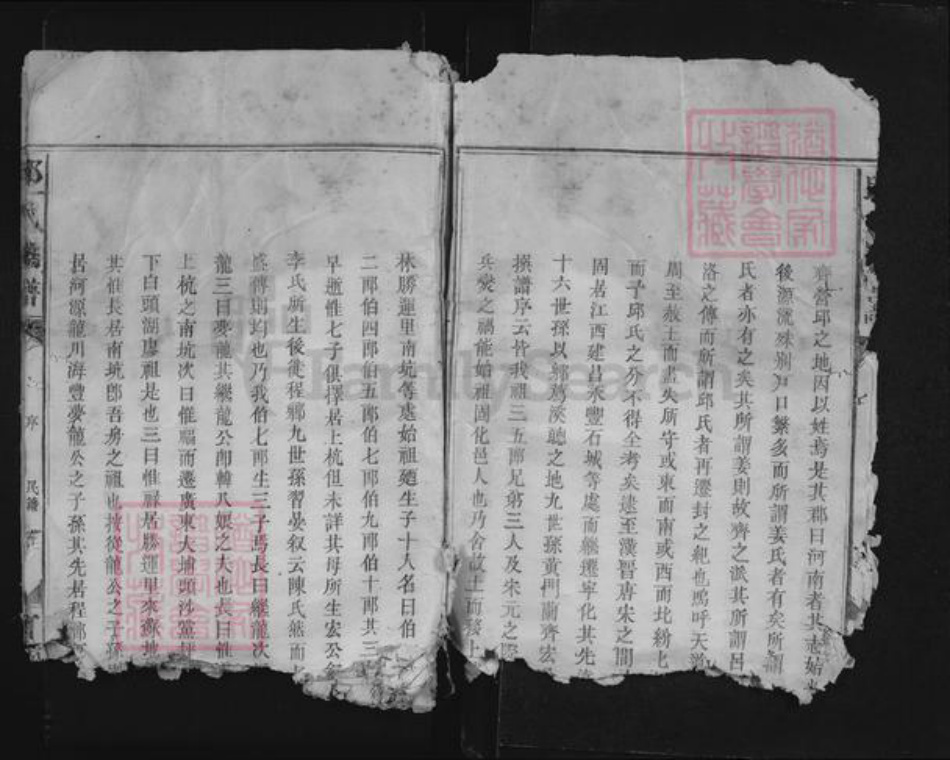 齊營邱之地因以姓焉是其郡曰河南者其志始
後源流殊別戶口繁多而所謂姜氏者有矣所謂
氏者亦有之矣其所謂姜則故齊之派其所謂呂
洛之傳而所謂邱氏者再遷封之杞也嗚呼天
周至赧王而盡失所守或東而南或西而北紛
而予邱氏之分不得全考矣逮至漢晉唐宋之間
固居江西建昌永豐石城等處而繼遷寧化其先
十六世孫以鄉為溪聽之地九世孫黃門蘭齊宏
撰譜序云皆我祖三五郎兄第三人及宋元之際
兵燹之禍能始祖固化邑人也乃舍故土而移上
林勝運里南坑等處始祖廼生子十人名曰伯
二郎伯四郎伯五郎伯七郎伯九郎伯十郎其三
早逝惟七子俱擇居上杭但未詳其母所生宏公
李氏所生後徙程鄉九世孫習晏叙云陳氏然而
盛傳則均也乃我伯七郎生三子焉長曰繼龍次
龍三曰夢龍其繼龍公即韓八娘之夫也長曰惟
上杭之南坑次曰惟福而遷廣東大埔頭沙黨坪
下白頭湖廖祖是也三曰惟祿居勝運里來蘇地
其惟長居南坑即吾房之祖也據從龍公之子孫
居河源龍川海豐夢龍公之子孫其先居程鄉
邱氏族譜 卷 序 民譜